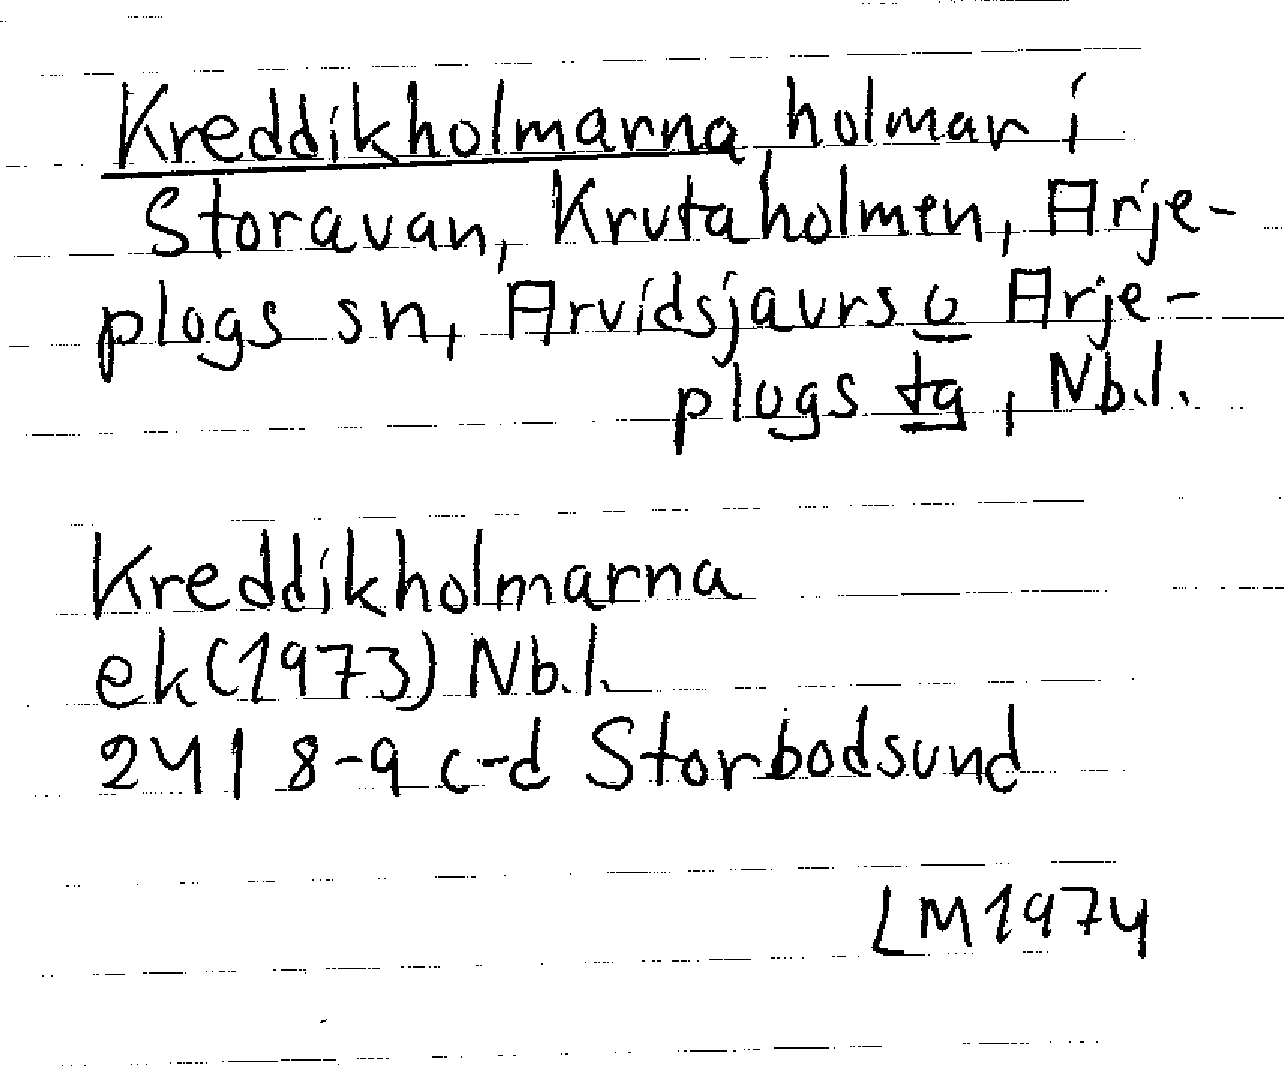 Kreddikholmarna holmar i
Storavan, Krutaholmen, Arje-
plogs sn, Arvidsjaurs o Arje-
plogs tg, Nb.l.
Kreddikholmarna
ek (1973) Nb.l.
24I 8-9 c-d Storbodsund
LM 1974